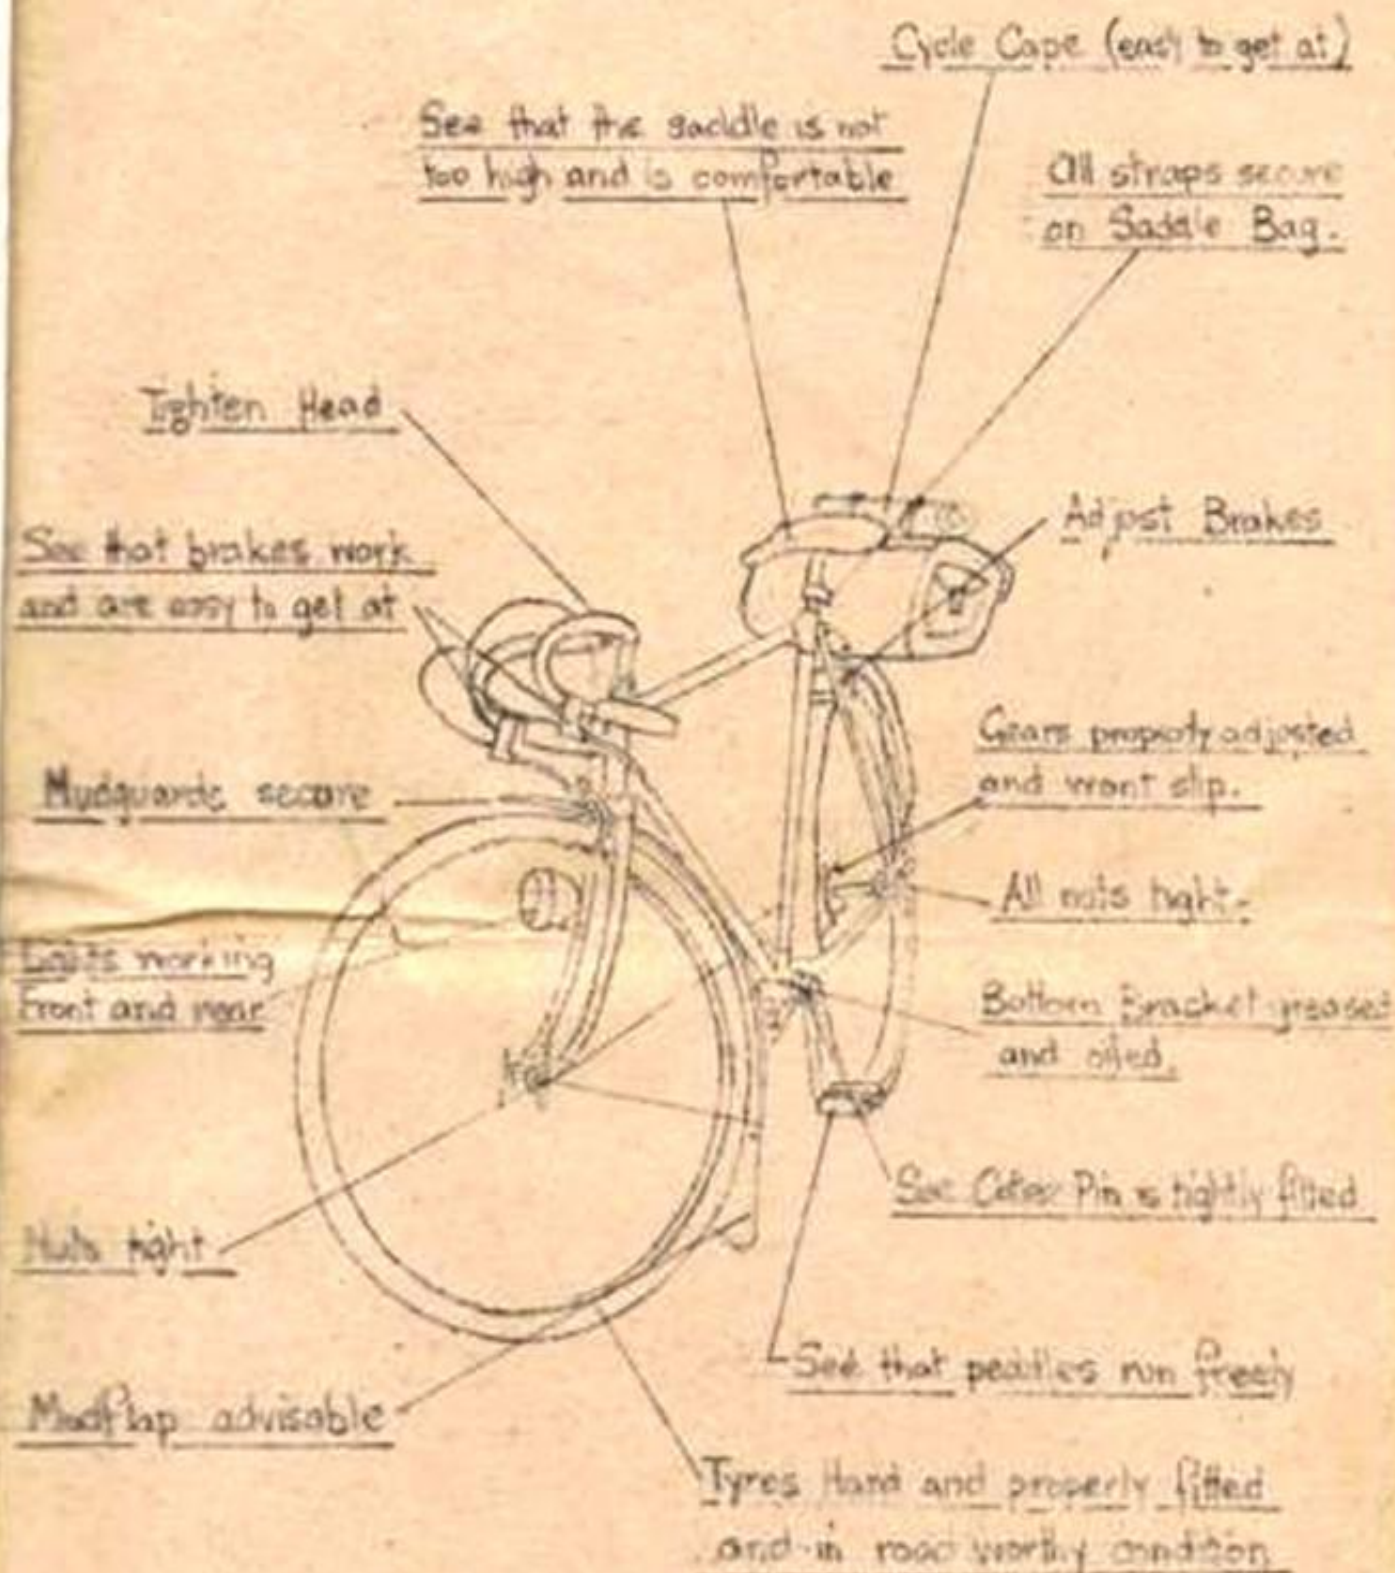 Cycle Cape (easy to get at)
See that the saddle is not
too high and is comfortable
All straps secure
on Saddle Bag.
Tighten Head
Adjust Brakes
See that brakes work
and are easy to get at
Gears properly adjusted
and wont slip.
Mudguards secure
All nuts tight.
Lights working
Front and rear
Bottom Bracket greased
and oiled.
See Cotter Pin is tightly fitted
Nuts tight
See that peddles run freely
Mudflap advisable
Tyres Hard and properly fitted
and in road worthy condition